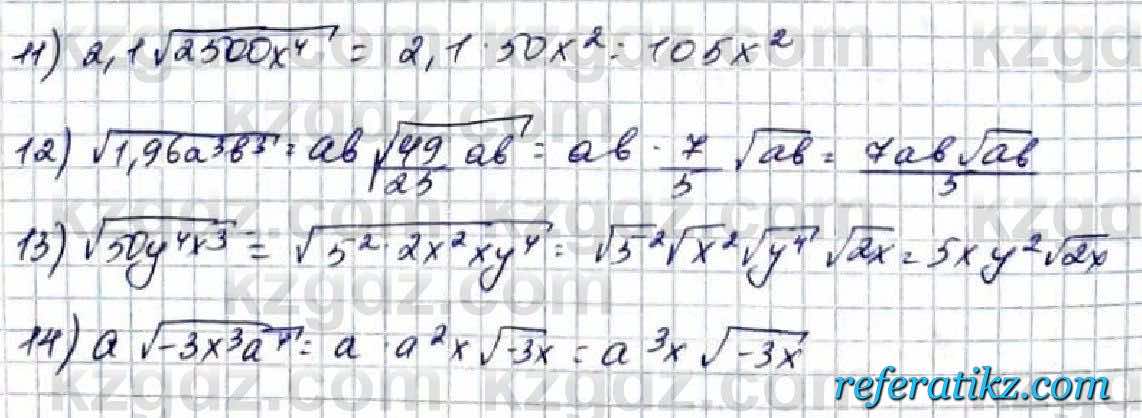 11) 2,1√2500x⁴ = 2,1·50x² = 105x²
12) √1,96a³b³ = ab√(49/25 ab) = ab · 7/5 √ab = 7ab√ab/5
13) √50y⁴x³ = √5²·2x²xy⁴ = √5²√x²√y⁴ √2x = 5xy²√2x
14) a √-3x³a⁴ = a·a²x√-3x = a³x √-3x
referatikz.com